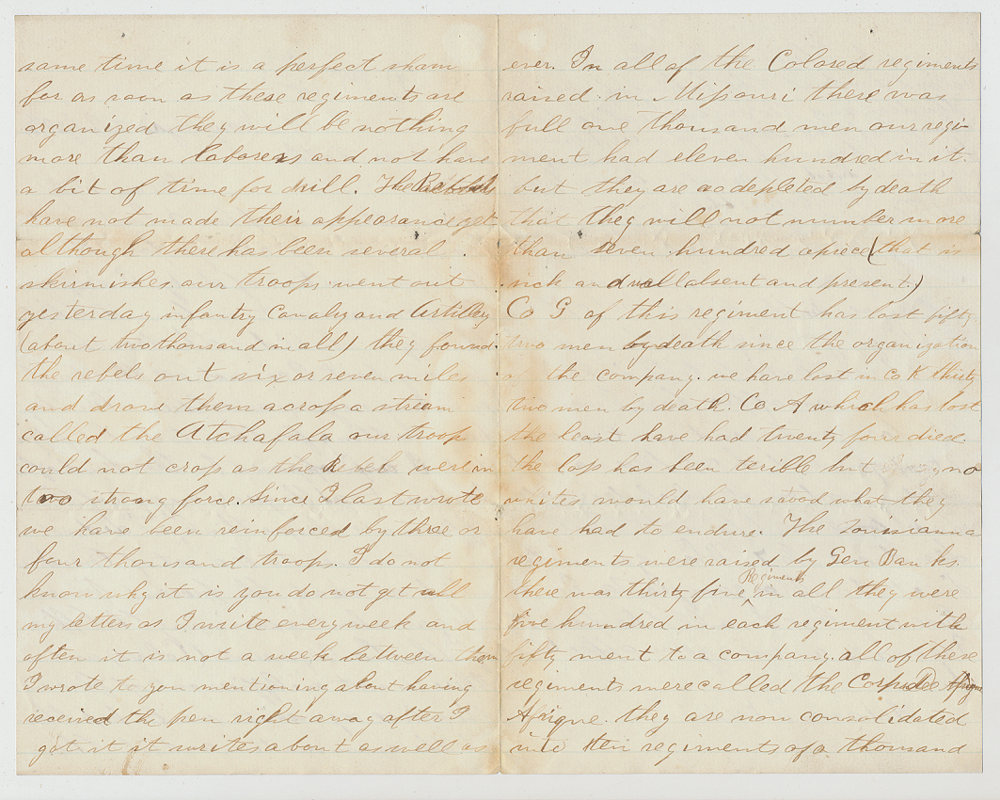 same time it is a perfect sham
for as soon as these regiments are
organized they will be nothing
more than laborers and not have
a bit of time for drill. The Rebbels
have not made their appearance yet
although there has been several
skirmishes. our troops went out
yesterday infantry Cavalry and Artillery
(about two thousand in all) they found
the rebels out six or seven miles
and drove them across a stream
called the Atchafala our troop
could not cross as the Rebels were in
two strong force. Since I last wrote
we have been reinforced by three or
four thousand troops. I do not
know why it is you do not get all
my letters as I write every week and
often it is not a week between them
I wrote to you mentioning about having
received the pen right away after I
got it it writes about as well as
ever. In all of the Colored regiments
raised in Missouri there was
full one thousand men our regi-
ment had eleven hundred in it.
but they are so depleted by death
that they will not number more
than seven hundred apiece (that is
sick and well absent and present)
Co G of this regiment has lost fifty
two men by death since the organization
of the company. we have lost in Co K thirty
two men by death. Co A which has lost
the least have had twenty four died.
the loss has been terible but no
whites would have stood what they
have had to endure. The Louisianna
regiments were raised by Gen Banks.
there was thirty five Regiments in all they were
five hundred in each regiment with
fifty ment to a company. all of these
regiments were called the Corps de
Afrique. they are now consolidated
into ten regiments of a thousand